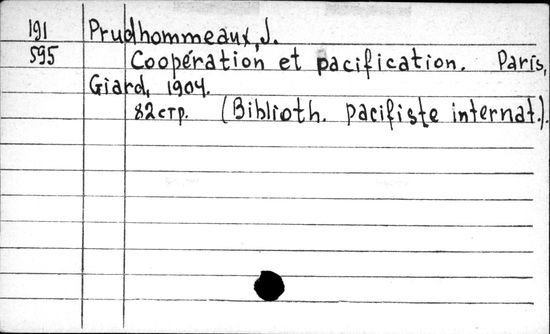 191 Prudhommeaux, J.
595 Coopération et pacification. Paris,
Giard, 1904.
82 стр. (Biblioth. pacifiste internat.).